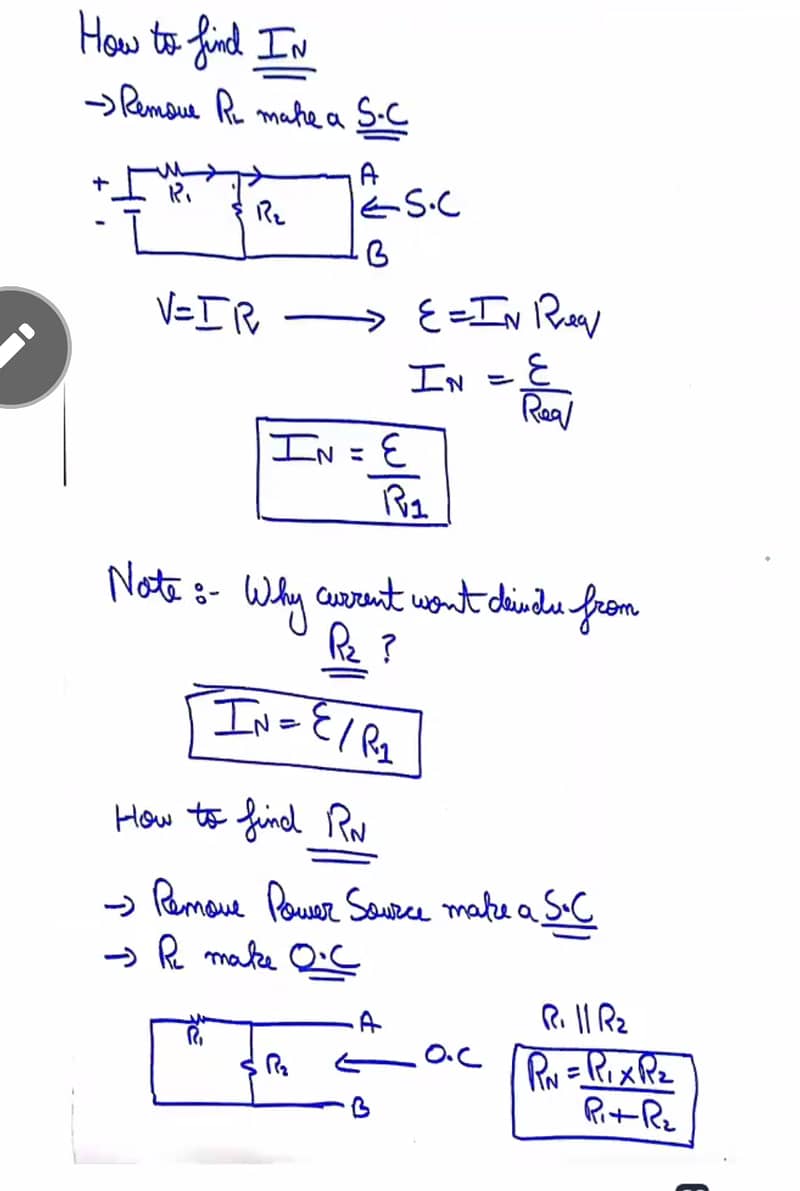 How to find IN
→ Remove RL make a S.C
+
-
R1
R2
A
← S.C
B
V=IR → ε = IN Req
IN = ε/Req
IN = ε/R1
Note :- Why current wont from
R2 ?
IN = ε/R1
How to find RN
→ Remove Power Source make a S.C
→ RL make O.C
R1
R2
A
← O.C
B
R1 || R2
RN = R1 x R2 / R1 + R2